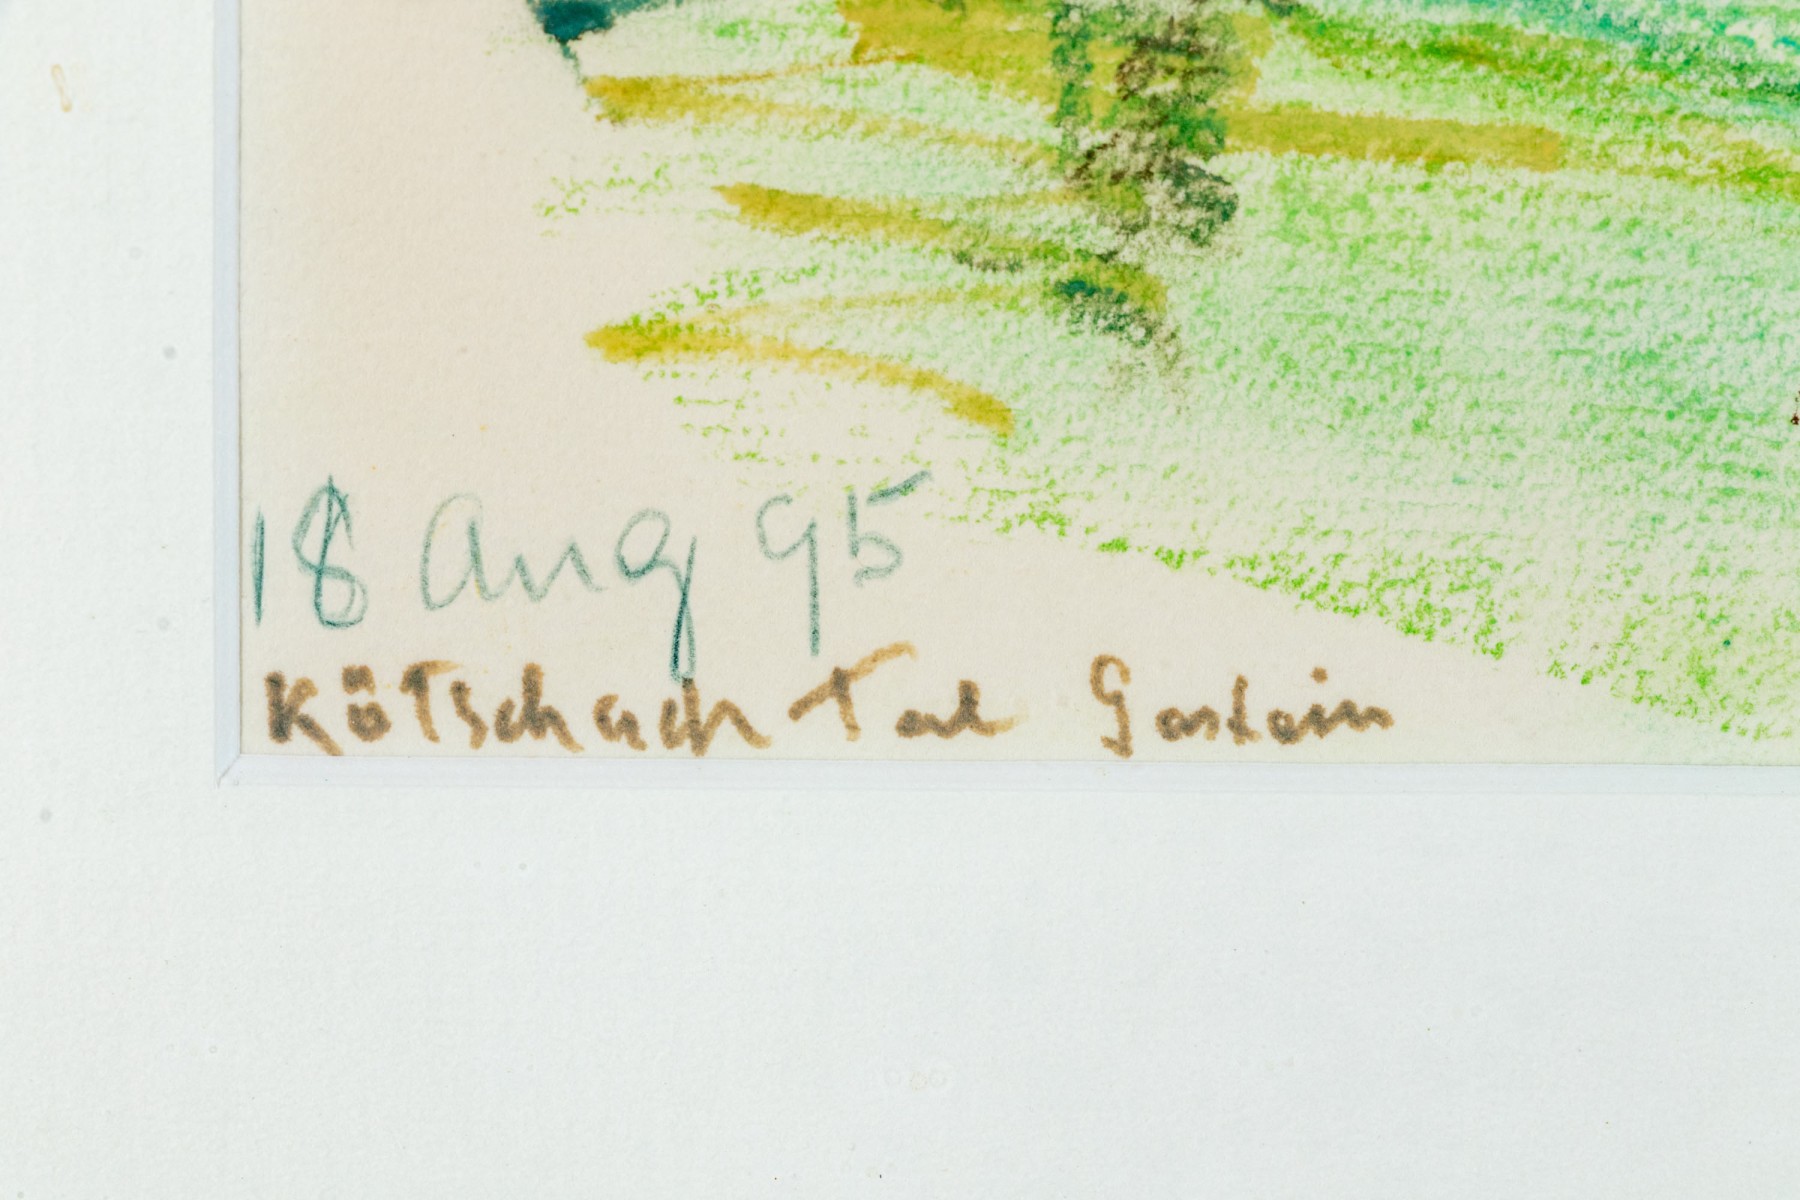 18 Aug 95
Kötschach Tal Gastein